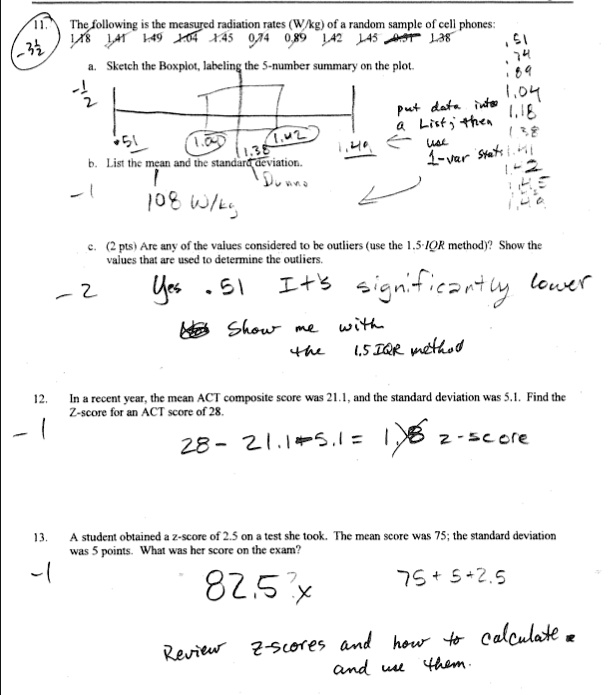 11. The following is the measured radiation rates (W/kg) of a random sample of cell phones:
-3½
1.18 1.41 1.49 1.04 1.45 0.74 0.89 1.42 1.45 0.51 1.38
.51
.74
.89
1.04
1.18
1.38
1.41
1.42
1.45
1.49
a. Sketch the Boxplot, labeling the 5-number summary on the plot.
-½
.51
1.42
1.38
1.49
put data into
a List; then
use
1-var stats
b. List the mean and the standard deviation.
-1
108 W/kg
Dunno
c. (2 pts) Are any of the values considered to be outliers (use the 1.5·IQR method)? Show the
values that are used to determine the outliers.
-2
Yes .51 It's significantly lower
Show me with
the 1.5 IQR method
12. In a recent year, the mean ACT composite score was 21.1, and the standard deviation was 5.1. Find the
Z-score for an ACT score of 28.
-1
28 - 21.1 ÷ 5.1 = z-score
13. A student obtained a z-score of 2.5 on a test she took. The mean score was 75; the standard deviation
was 5 points. What was her score on the exam?
-1
82.5 ? x
75 + 5 + 2.5
Review z-scores and how to calculate
and use them.